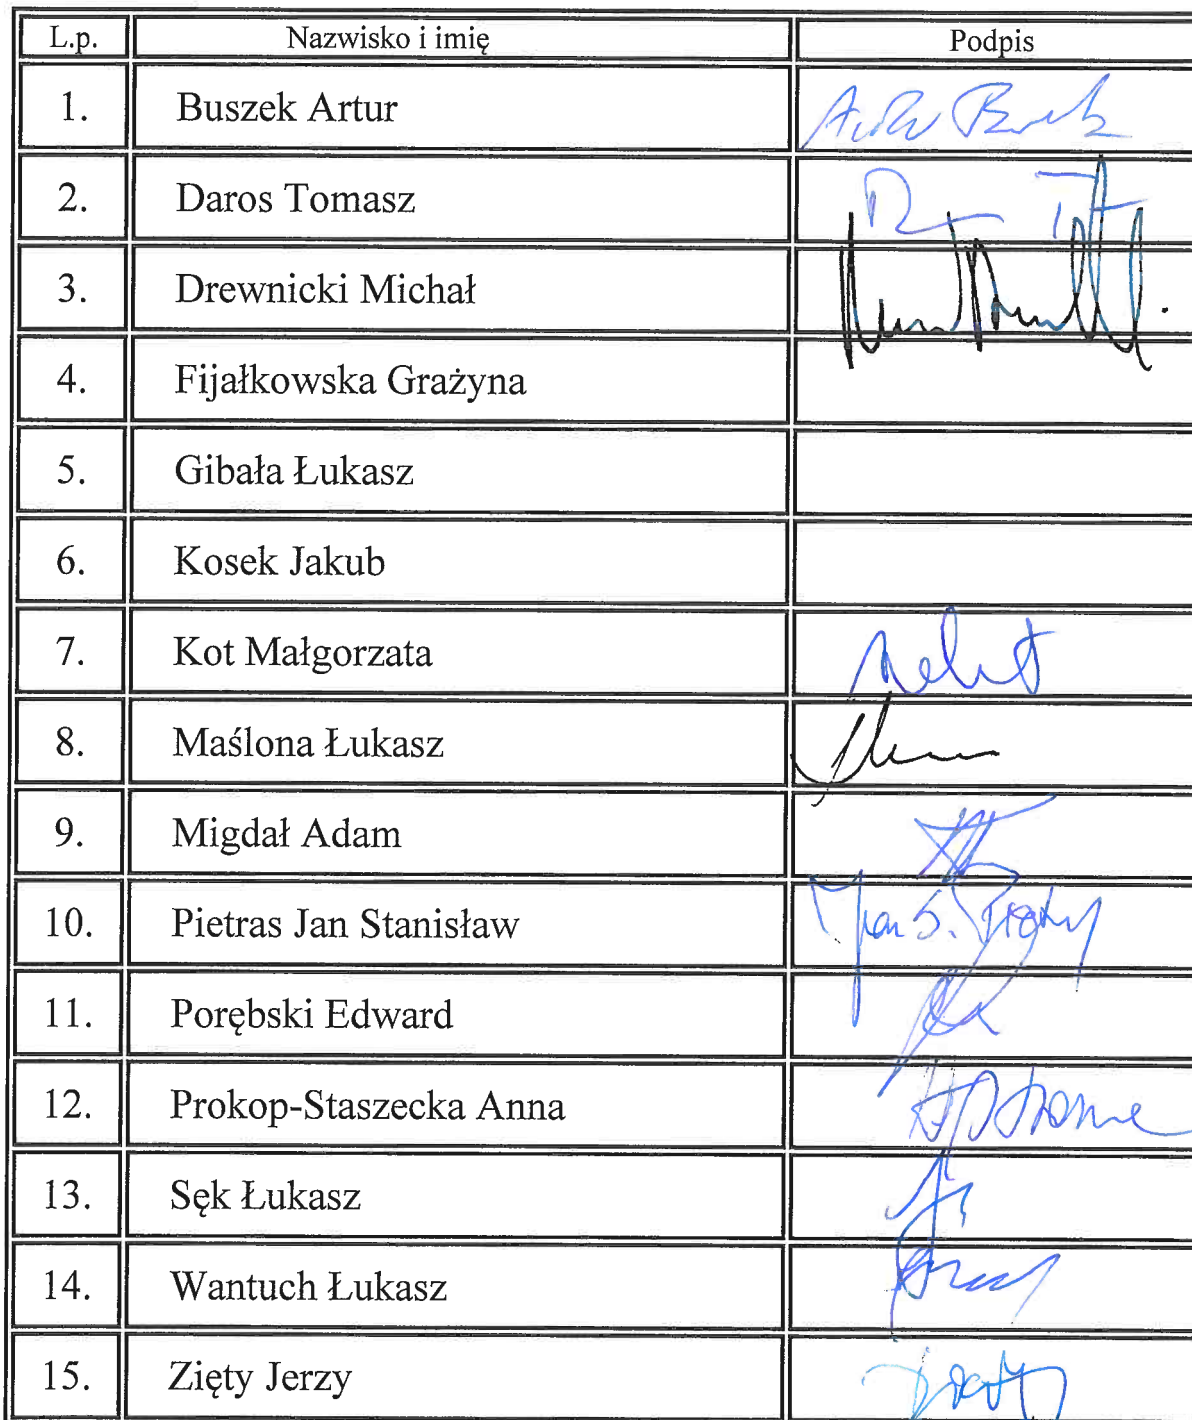 L.p. Nazwisko i imię Podpis
1. Buszek Artur
2. Daros Tomasz
3. Drewnicki Michał
4. Fijałkowska Grażyna
5. Gibała Łukasz
6. Kosek Jakub
7. Kot Małgorzata
8. Maślona Łukasz
9. Migdał Adam
10. Pietras Jan Stanisław Jan S.
11. Porębski Edward
12. Prokop-Staszecka Anna
13. Sęk Łukasz
14. Wantuch Łukasz
15. Zięty Jerzy